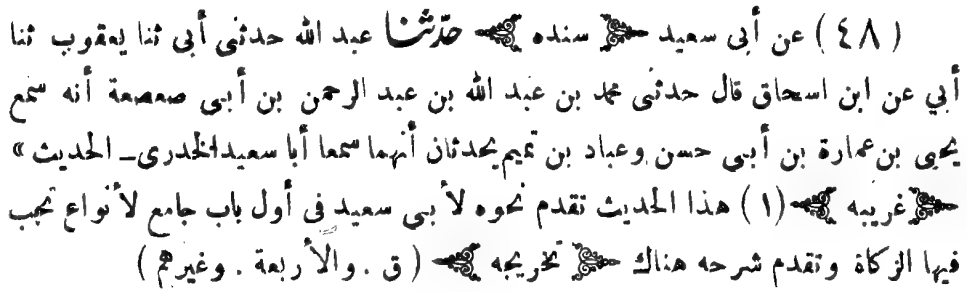 ( ٤٨ ) عن أبى سعيد سنده حدّثنا عبد الله حدثنى أبى ثنا يعقوب ثنا
أبي عن ابن اسحاق قال حدثنى محمد بن عبد الله بن عبد الرحمن بن أبى صعصعة أنه سمع
يحيى بن عمارة بن أبي حسن وعباد بن تميم يحدثان أنهما سمعا أبا سعيد الخدرى ــ الحديث »
غريبه (١) هذا الحديث تقدم نحوه لأبي سعيد فى أول باب جامع لأنواع تجب
فيها الزكاة وتقدم شرحه هناك تخريجه ( ق . والأربعة . وغيرهم )